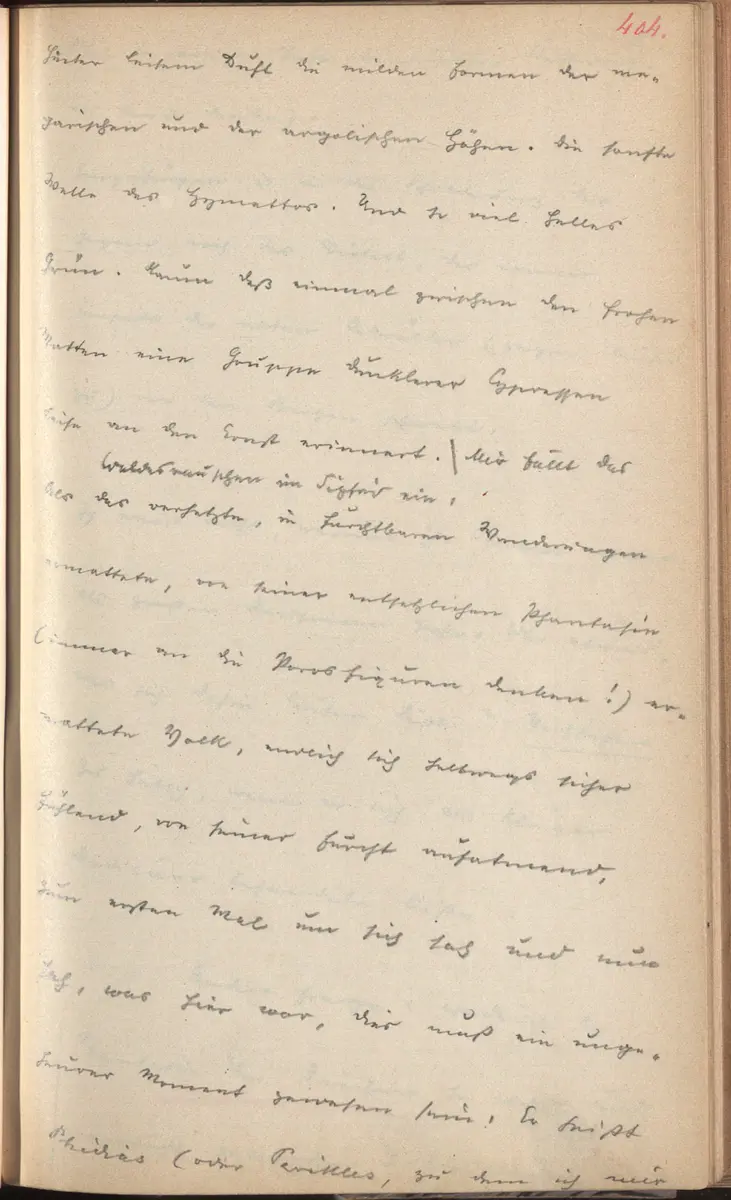 404.
hinter leisem Duft die milden Formen der me-
garischen und der argolischen Höhen. Die sanfte
Welle des Hymettos. Und so viel helles
Grün. Kaum daß einmal zwischen den frohen
Matten eine Gruppe dunklerer Cypressen
leise an den Ernst erinnert. | Mir fällt das
Waldesrauschen im Sigfrid ein:
Als das verhetzte, in furchtbaren Wanderungen
ermattete, von seiner entsetzlichen Phantasie
(immer an die Porosfiguren denken!) er-
mattete Volk, endlich sich halbwegs sicher
fühlend, von seiner Furcht aufatmend,
zum ersten Mal um sich sah und nun
sah, was hier war, dies muß ein unge-
heurer Moment gewesen sein: Er heißt
Phidias (oder Perikles, zu dem ich mir